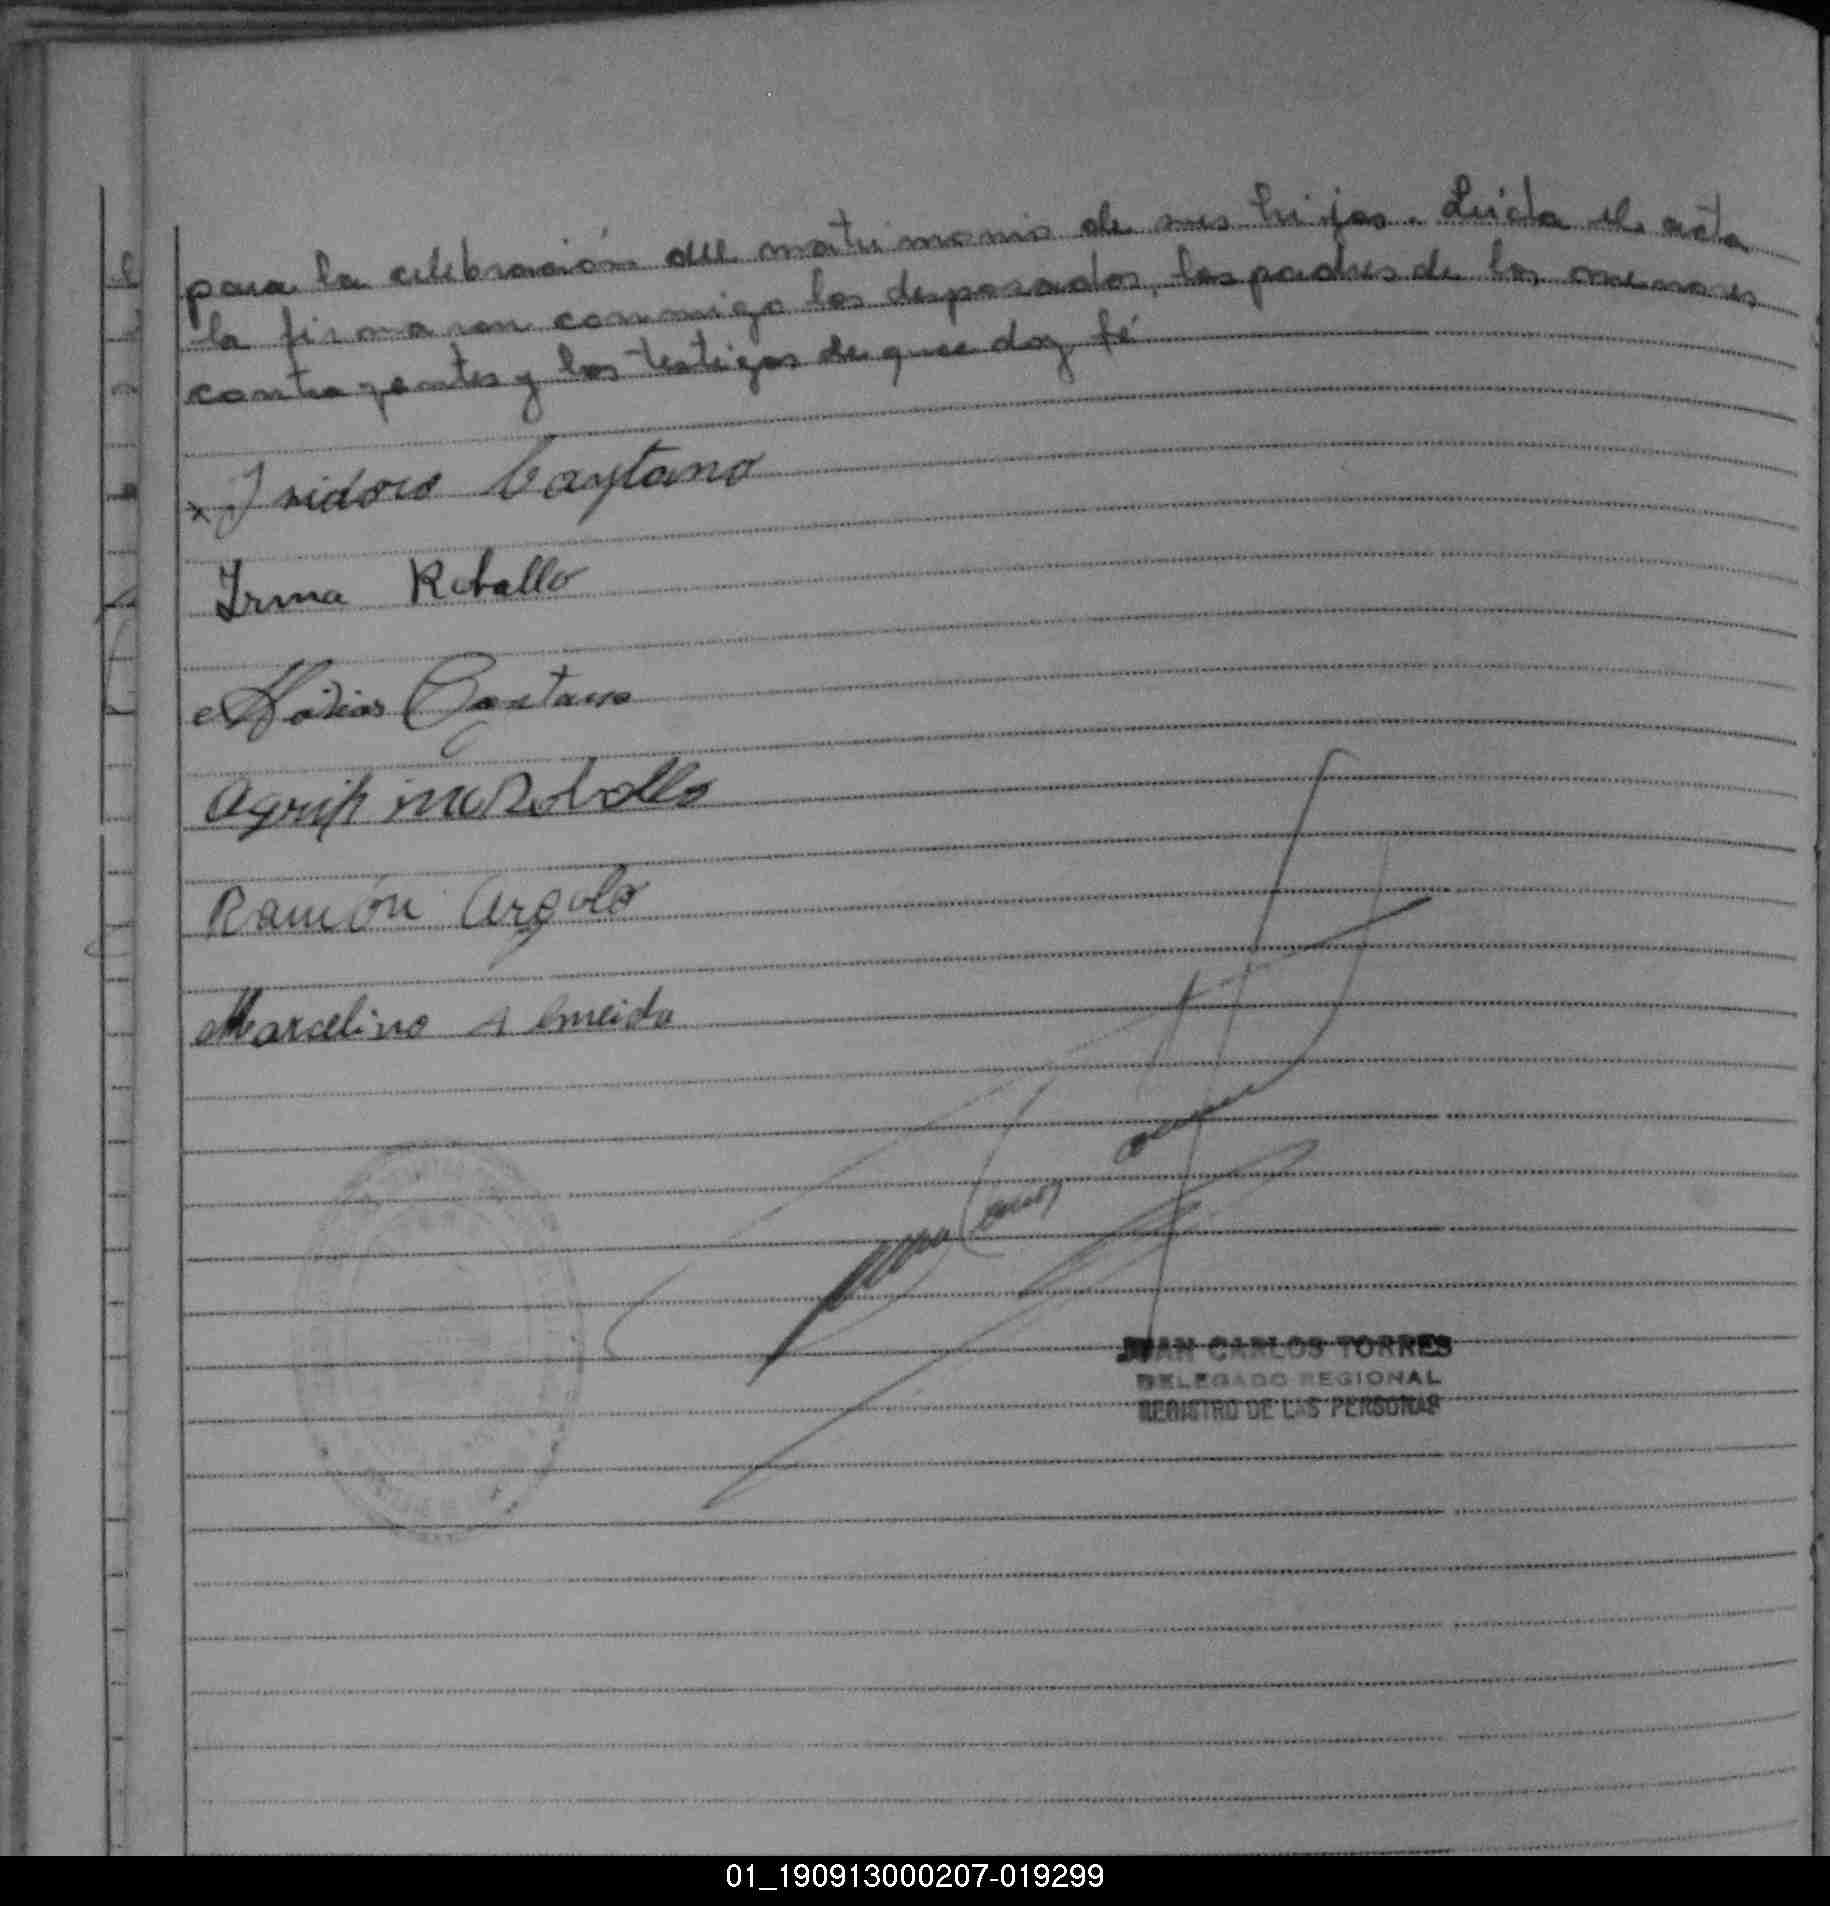 para la celebración del matrimonio de sus hijos. Leida el acta
la firmaron conmigo los desposados, los padres de los menores
contrayentes y los testigos de que doy fé
x Isidoro Caytano
Irma Roballo
Matias Caytano
Agripino Roballo
Ramón Argolo
Marcelino Almeida
JUAN CARLOS TORRES
DELEGADO REGIONAL
REGISTRO DE LAS PERSONAS
01_190913000207-019299